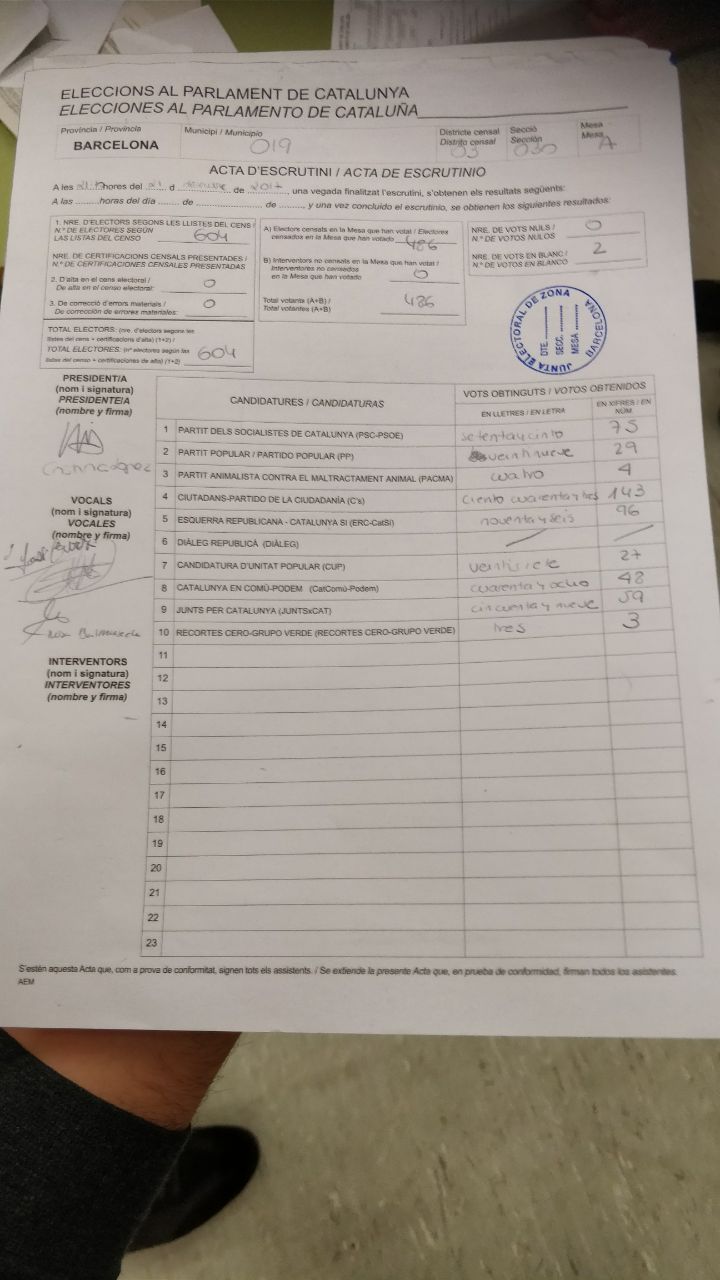 ELECCIONS AL PARLAMENT DE CATALUNYA
ELECCIONES AL PARLAMENTO DE CATALUÑA
Província / Provincia
BARCELONA
Municipi / Municipio
019
Districte censal
Distrito censal
03
Secció
Sección
030
Mesa
Mesa
A
ACTA D'ESCRUTINI / ACTA DE ESCRUTINIO
A les hores del d de 2017, una vegada finalitzat l'escrutini, s'obtenen els resultats següents:
A las .........horas del día ...... de ............... de ........, y una vez concluido el escrutinio, se obtienen los siguientes resultados:
1. NRE. D'ELECTORS SEGONS LES LLISTES DEL CENS /
N.º DE ELECTORES SEGÚN
LAS LISTAS DEL CENSO 604
NRE. DE CERTIFICACIONS CENSALS PRESENTADES /
N.º DE CERTIFICACIONES CENSALES PRESENTADAS
2. D'alta en el cens electoral /
De alta en el censo electoral: 0
3. De correcció d'errors materials /
De corrección de errores materiales: 0
TOTAL ELECTORS: (nre. d'electors segons les
llistes del cens + certificacions d'alta) (1+2) /
TOTAL ELECTORES: (nº electores según las
listas del censo + certificaciones de alta) (1+2) 604
A) Electors censats en la Mesa que han votat / Electores
censados en la Mesa que han votado 486
B) Interventors no censats en la Mesa que han votat /
Interventores no censados
en la Mesa que han votado 0
Total votants (A+B) /
Total votantes (A+B) 486
NRE. DE VOTS NULS /
N.º DE VOTOS NULOS 0
NRE. DE VOTS EN BLANC /
N.º DE VOTOS EN BLANCO 2
JUNTA ELECTORAL DE ZONA
BARCELONA
DTE.
SECC.
MESA
PRESIDENT/A
(nom i signatura)
PRESIDENTE/A
(nombre y firma)
VOCALS
(nom i signatura)
VOCALES
(nombre y firma)
INTERVENTORS
(nom i signatura)
INTERVENTORES
(nombre y firma)
CANDIDATURES / CANDIDATURAS
VOTS OBTINGUTS / VOTOS OBTENIDOS
EN LLETRES / EN LETRA
EN XIFRES / EN NÚM.
1 PARTIT DELS SOCIALISTES DE CATALUNYA (PSC-PSOE) setentaycinco 75
2 PARTIT POPULAR / PARTIDO POPULAR (PP) veintinueve 29
3 PARTIT ANIMALISTA CONTRA EL MALTRACTAMENT ANIMAL (PACMA) cuatro 4
4 CIUTADANS-PARTIDO DE LA CIUDADANÍA (C's) ciento cuarenta y tres 143
5 ESQUERRA REPUBLICANA - CATALUNYA SI (ERC-CatSí) noventa y seis 96
6 DIÀLEG REPUBLICÀ (DIÀLEG)
7 CANDIDATURA D'UNITAT POPULAR (CUP) veintisiete 27
8 CATALUNYA EN COMÚ-PODEM (CatComú-Podem) cuarenta y ocho 48
9 JUNTS PER CATALUNYA (JUNTSxCAT) cincuenta y nueve 59
10 RECORTES CERO-GRUPO VERDE (RECORTES CERO-GRUPO VERDE) tres 3
11
12
13
14
15
16
17
18
19
20
21
22
23
S'estén aquesta Acta que, com a prova de conformitat, signen tots els assistents. / Se extiende la presente Acta que, en prueba de conformidad, firman todos los asistentes.
AEM